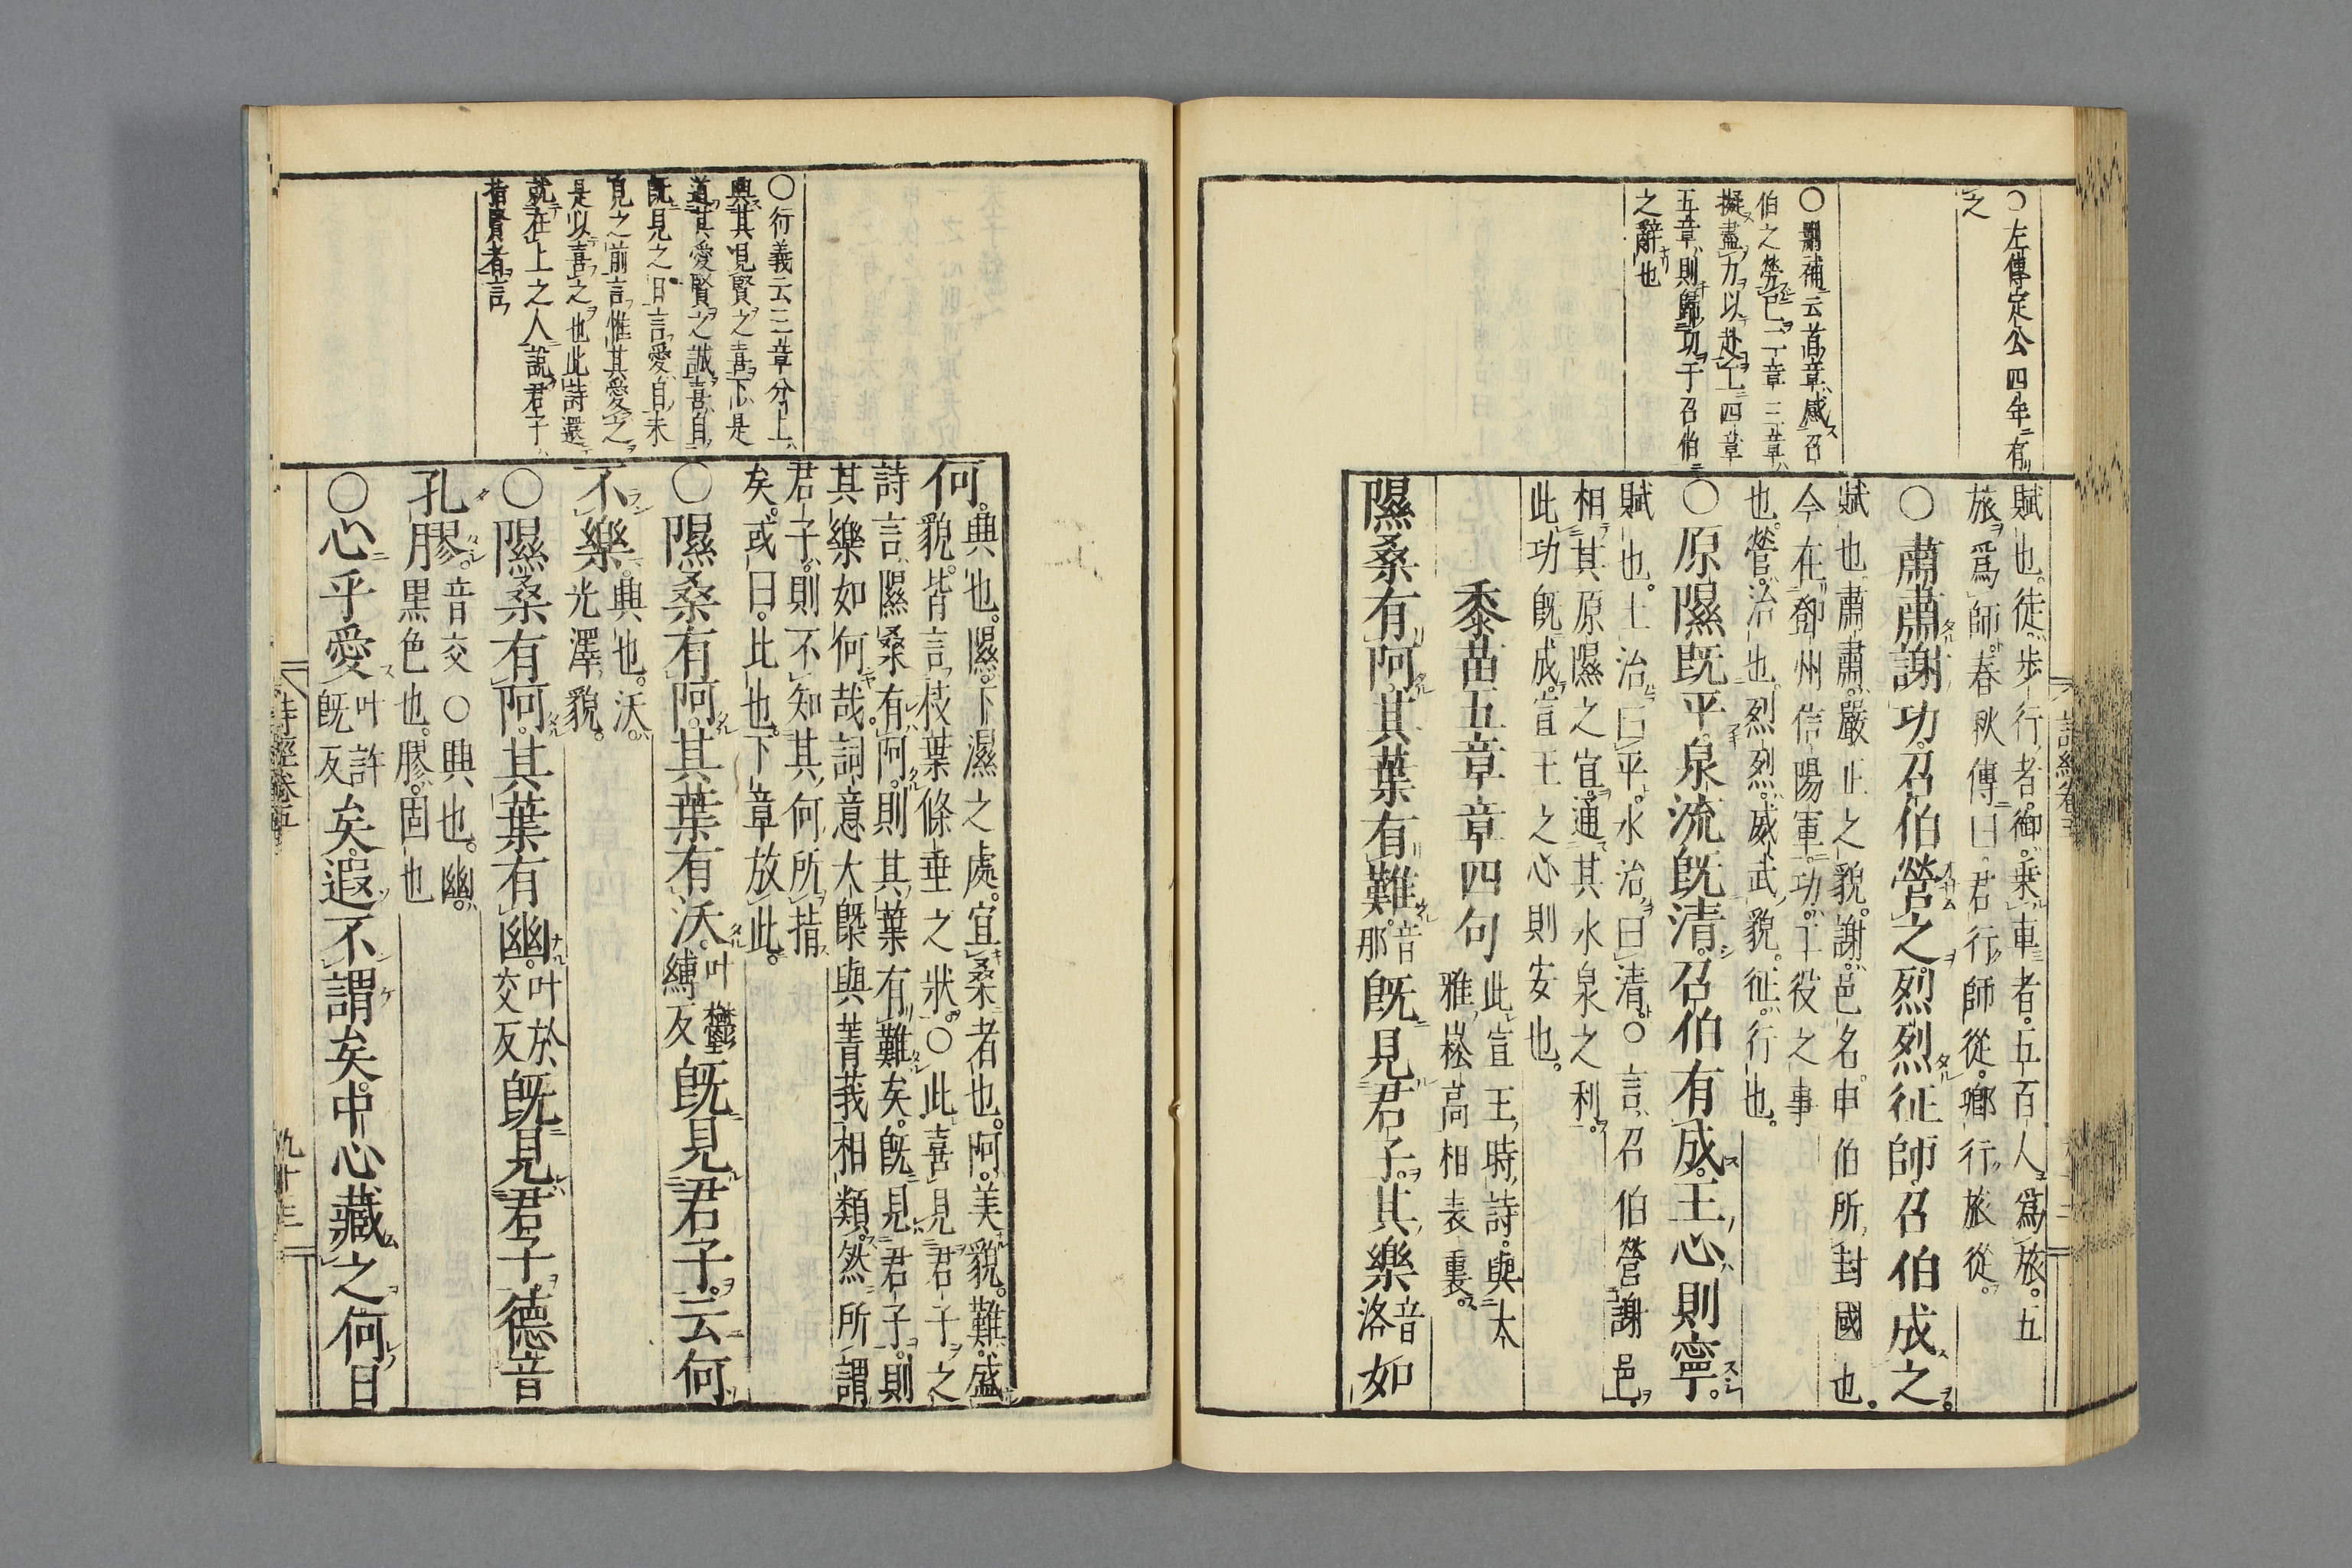 ○左傳定公四年有
之
○刪補云首章感召
伯之勞已二章三章
擬盡力以赴工四章
五章則歸功于召伯
之辭也
賦也。徒歩行者。御。乗車者。五百人爲旅。五
旅爲師。春秋傳曰。君行師從。卿行旅從。
○肅肅謝功。召伯營之。烈烈征師。召伯成之。
賦也。肅肅。嚴正之貌。謝。邑名。申伯所封國也。
今在鄧州信陽軍。功。工役之事
也。營。治也。烈烈。威武貌。征。行也。
○原隰既平。泉流既清。召伯有成。王心則寧。
賦也。土治曰平。水治曰清。○言召伯營謝邑。
相其原隰之宜。通其水泉之利。
此功既成。宣王之心則安也。
黍苗五章章四句 此宣王時詩。與大
雅崧高相表裏。
隰桑有阿。其葉有難。音那既見君子。其樂音洛如
詩經卷五
○衍義云三章分上
興其見賢之喜下是
道其愛賢之誠喜自
既見之日言愛自未
見之前言惟其愛之
是以喜之也此詩還
就在上之人說君子
指賢者言
何。興也。隰。下濕之處。宜桑者也。阿。美貌。難。盛
貌。皆言枝葉條垂之狀。○此喜見君子之
詩言。隰桑有阿。則其葉有難矣。既見君子。則
其樂如何哉。詞意大槩與菁莪相類。然所謂
君子。則不知其何所指
矣。或曰。比也。下章放此。
○隰桑有阿。其葉有沃。叶鬱縛反既見君子。云何
不樂。興也。沃。
光澤貌。
○隰桑有阿。其葉有幽。叶於交反既見君子。德音
孔膠。音交○興也。幽。
黒色也。膠。固也
○心乎愛叶許既反矣。遐不謂矣。中心藏之。何日
詩經卷五
九十三